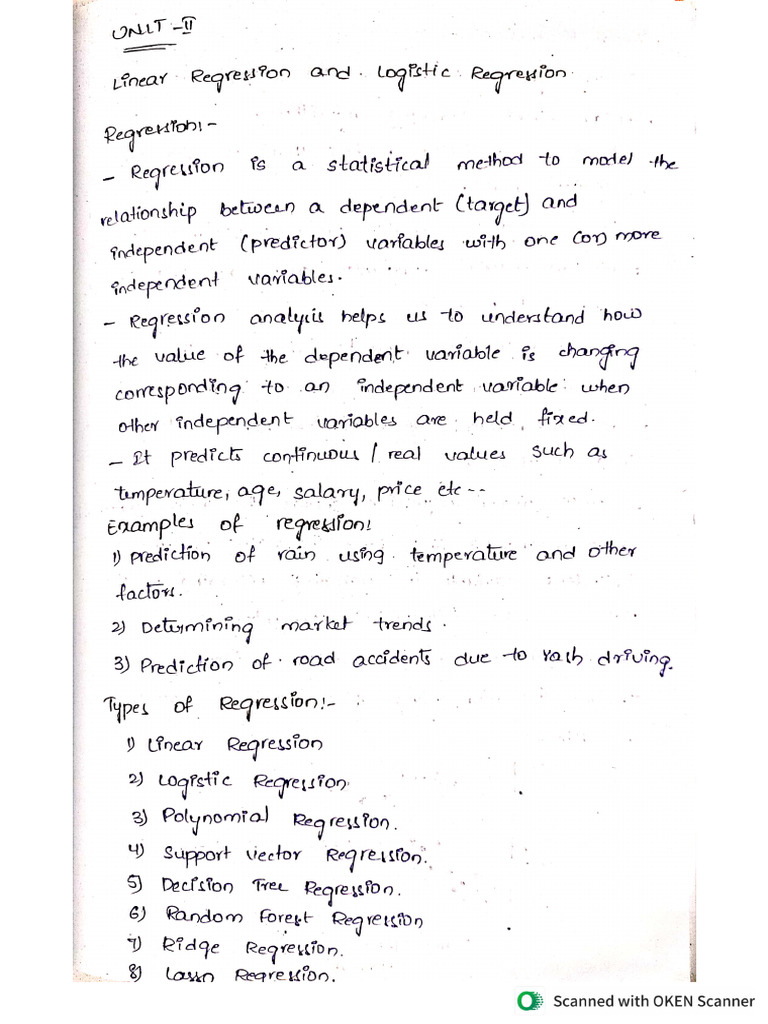 UNIT-II
Linear Regression and Logistic Regression
Regression:-
- Regression is a statistical method to model the
relationship between a dependent (target) and
independent (predictor) variables with one (or) more
independent variables.
- Regression analysis helps us to understand how
the value of the dependent variable is changing
corresponding to an independent variable when
other independent variables are held fixed.
- It predicts continuous / real values such as
temperature, age, salary, price etc --
Examples of regression:
1) prediction of rain using temperature and other
factors.
2) Determining market trends.
3) Prediction of road accidents due to rash driving.
Types of Regression:-
1) Linear Regression
2) Logistic Regression
3) Polynomial Regression.
4) Support Vector Regression.
5) Decision Tree Regression.
6) Random Forest Regression
7) Ridge Regression.
8) Lasso Regression.
Scanned with OKEN Scanner